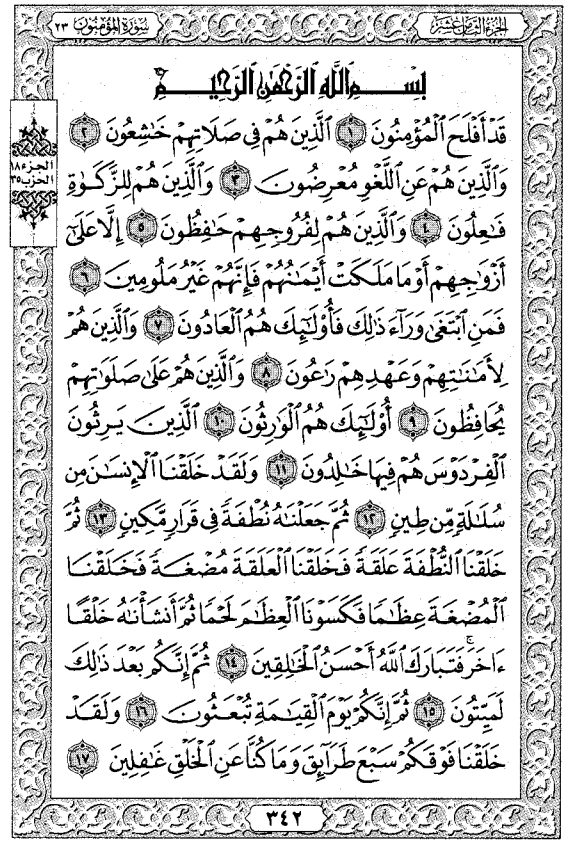 الجزء الثامن عشر
سورة المؤمنون ٢٣
بِسْمِ اللَّهِ الرَّحْمَٰنِ الرَّحِيمِ
الجزء ١٨
الحزب ٣٥
قَدْ أَفْلَحَ الْمُؤْمِنُونَ ١ الَّذِينَ هُمْ فِي صَلَاتِهِمْ خَاشِعُونَ ٢
وَالَّذِينَ هُمْ عَنِ اللَّغْوِ مُعْرِضُونَ ٣ وَالَّذِينَ هُمْ لِلزَّكَوٰةِ
فَاعِلُونَ ٤ وَالَّذِينَ هُمْ لِفُرُوجِهِمْ حَافِظُونَ ٥ إِلَّا عَلَىٰٓ
أَزْوَاجِهِمْ أَوْ مَا مَلَكَتْ أَيْمَانُهُمْ فَإِنَّهُمْ غَيْرُ مَلُومِينَ ٦
فَمَنِ ابْتَغَىٰ وَرَآءَ ذَٰلِكَ فَأُو۟لَٰٓئِكَ هُمُ الْعَادُونَ ٧ وَالَّذِينَ هُمْ
لِأَمَانَاتِهِمْ وَعَهْدِهِمْ رَاعُونَ ٨ وَالَّذِينَ هُمْ عَلَىٰ صَلَوَاتِهِمْ
يُحَافِظُونَ ٩ أُو۟لَٰٓئِكَ هُمُ الْوَارِثُونَ ١٠ الَّذِينَ يَرِثُونَ
الْفِرْدَوْسَ هُمْ فِيهَا خَالِدُونَ ١١ وَلَقَدْ خَلَقْنَا الْإِنسَانَ مِن
سُلَالَةٍ مِّن طِينٍ ١٢ ثُمَّ جَعَلْنَاهُ نُطْفَةً فِي قَرَارٍ مَّكِينٍ ١٣ ثُمَّ
خَلَقْنَا النُّطْفَةَ عَلَقَةً فَخَلَقْنَا الْعَلَقَةَ مُضْغَةً فَخَلَقْنَا
الْمُضْغَةَ عِظَامًا فَكَسَوْنَا الْعِظَامَ لَحْمًا ثُمَّ أَنشَأْنَاهُ خَلْقًا
ءَاخَرَ ۚ فَتَبَارَكَ اللَّهُ أَحْسَنُ الْخَالِقِينَ ١٤ ثُمَّ إِنَّكُم بَعْدَ ذَٰلِكَ
لَمَيِّتُونَ ١٥ ثُمَّ إِنَّكُمْ يَوْمَ الْقِيَامَةِ تُبْعَثُونَ ١٦ وَلَقَدْ
خَلَقْنَا فَوْقَكُمْ سَبْعَ طَرَآئِقَ وَمَا كُنَّا عَنِ الْخَلْقِ غَافِلِينَ ١٧
٣٤٢